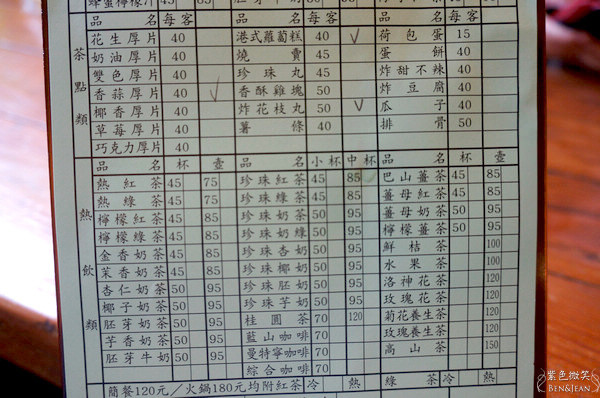 品 名 每客 品 名 每客 品 名 每客
茶點類
花生厚片 40 港式蘿蔔糕 40 荷包蛋 15
奶油厚片 40 燒賣 45 蛋餅 40
雙色厚片 40 珍珠丸 45 炸甜不辣 40
香蒜厚片 40 香酥雞塊 50 炸豆腐 40
椰香厚片 40 炸花枝丸 50 瓜子 40
草莓厚片 40 薯條 40 排骨 50
巧克力厚片 40
熱飲類
品 名 杯 壺 品 名 小杯 中杯 品 名 杯 壺
熱紅茶 45 75 珍珠紅茶 45 85 巴山薑茶 45 85
熱綠茶 45 75 珍珠綠茶 45 85 薑母紅茶 45 85
檸檬紅茶 45 85 珍珠奶茶 50 95 薑母奶茶 50 95
檸檬綠茶 45 85 珍珠奶綠 50 95 檸檬薑茶 50 95
金香奶茶 45 85 珍珠杏奶 50 95 鮮桔茶 100
茉香奶茶 45 85 珍珠椰奶 50 95 水果茶 100
杏仁奶茶 50 95 珍珠胚奶 50 95 洛神花茶 120
椰子奶茶 50 95 珍珠芋奶 50 95 玫瑰花茶 120
胚芽奶茶 50 95 桂圓茶 70 120 菊花養生茶 120
芋香奶茶 50 95 藍山咖啡 70 玫瑰養生茶 120
胚芽牛奶 50 95 曼特寧咖啡 70 高山茶 150
綜合咖啡 70
簡餐120元／火鍋180元均附紅茶 冷 熱 綠茶 冷 熱
紫色微笑
BEN&JEAN